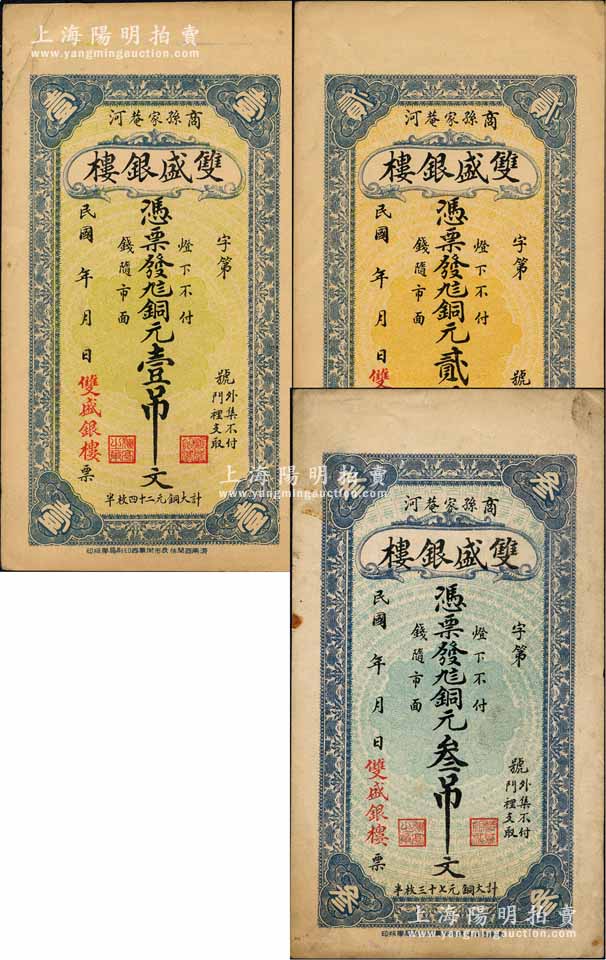 上海陽明拍賣
www.yangmingauction.com
壹
壹
商孫家菴河
雙盛銀樓
字第
號
外集不付
門裡支取
燈下不付
憑票發兌銅元壹吊文
錢隨市面
民國 年 月 日
雙盛銀樓票
計大銅元二十四枚半
壹
壹
貳
貳
商孫家菴河
雙盛銀樓
字第
號
燈下不付
憑票發兌銅元貳
錢隨市面
民國 年 月 日
雙
上海陽明拍賣
www.yangmingauction.com
叁
商孫家菴河
雙盛銀樓
字第
號
外集不付
門裡支取
燈下不付
憑票發兌銅元叁吊文
錢隨市面
民國 年 月 日
雙盛銀樓票
計大銅元七十三枚半
叁
叁
上海陽明拍賣
www.yangmingauction.com